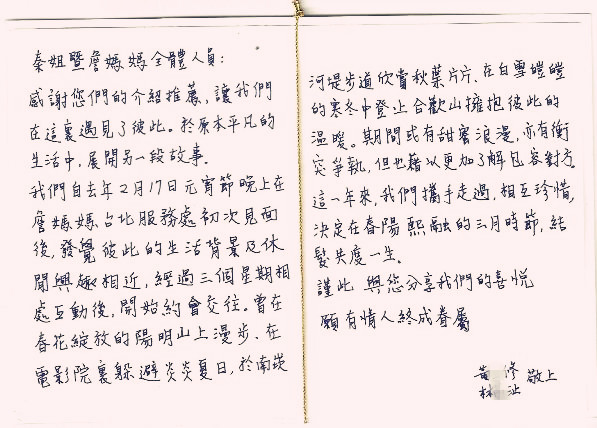 秦姐暨詹媽媽全體人員：
感謝您們的介紹推薦，讓我們
在這裏遇見了彼此。於原本平凡的
生活中，展開另一段故事。
我們自去年2月17日元宵節晚上在
詹媽媽台北服務處初次見面
後，發覺彼此的生活背景及休
閒興趣相近，經過三個星期相
處互動後，開始約會交往。曾在
春花綻放的陽明山上漫步、在
電影院裏躲避炎炎夏日，於南崁
河堤步道欣賞秋葉片片、在白雪皚皚
的寒冬中登上合歡山擁抱彼此的
溫暖。期間或有甜蜜浪漫，亦有衝
突爭執，但也藉以更加了解包容對方。
這一年來，我們攜手走過，相互珍惜，
決定在春陽熙融的三月時節，結
髮共度一生。
謹此 與您分享我們的喜悅
願有情人終成眷屬
黃 修
林 沚 敬上